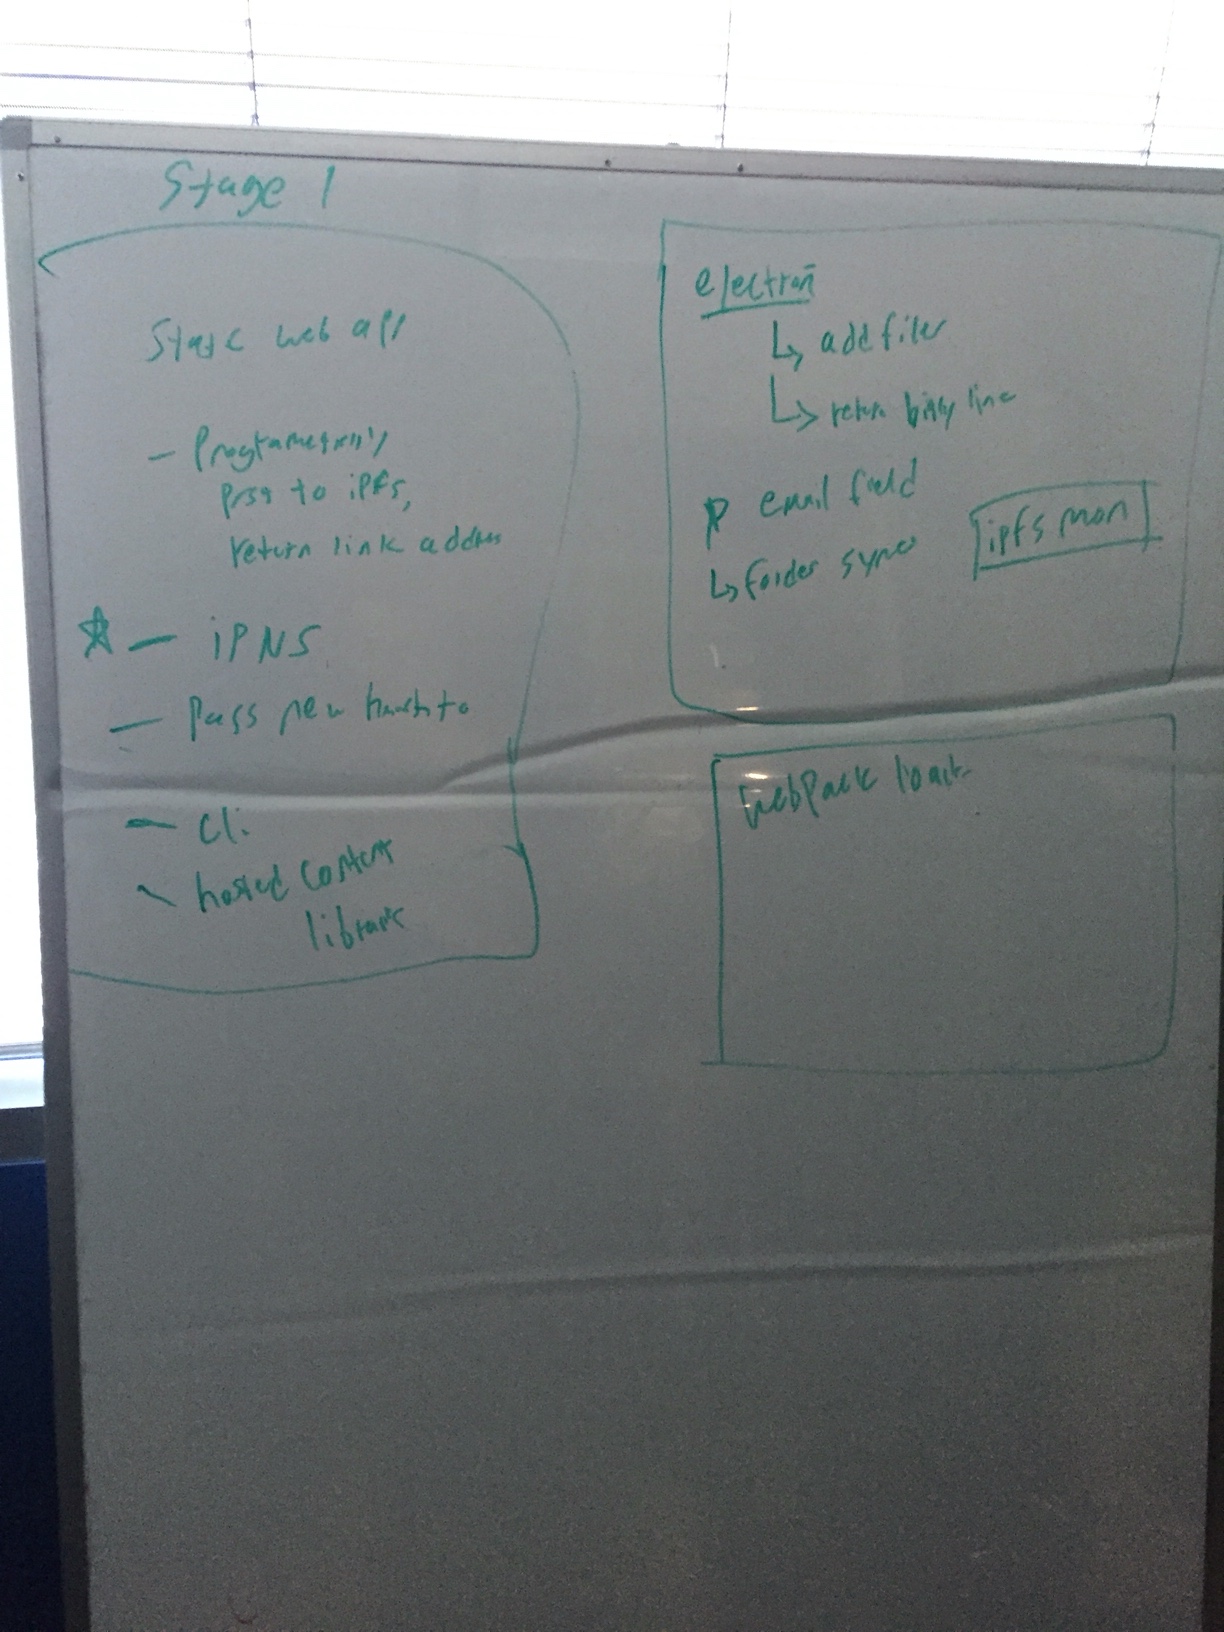 Stage 1
Static web app
- Programatically
push to ipfs,
return link address
- IPNS
- Pass new hash to
- cli
- hosted content
library
electron
↳ add files
↳ return bitly link
email field
↳ folder sync
ipfs mon
webpack